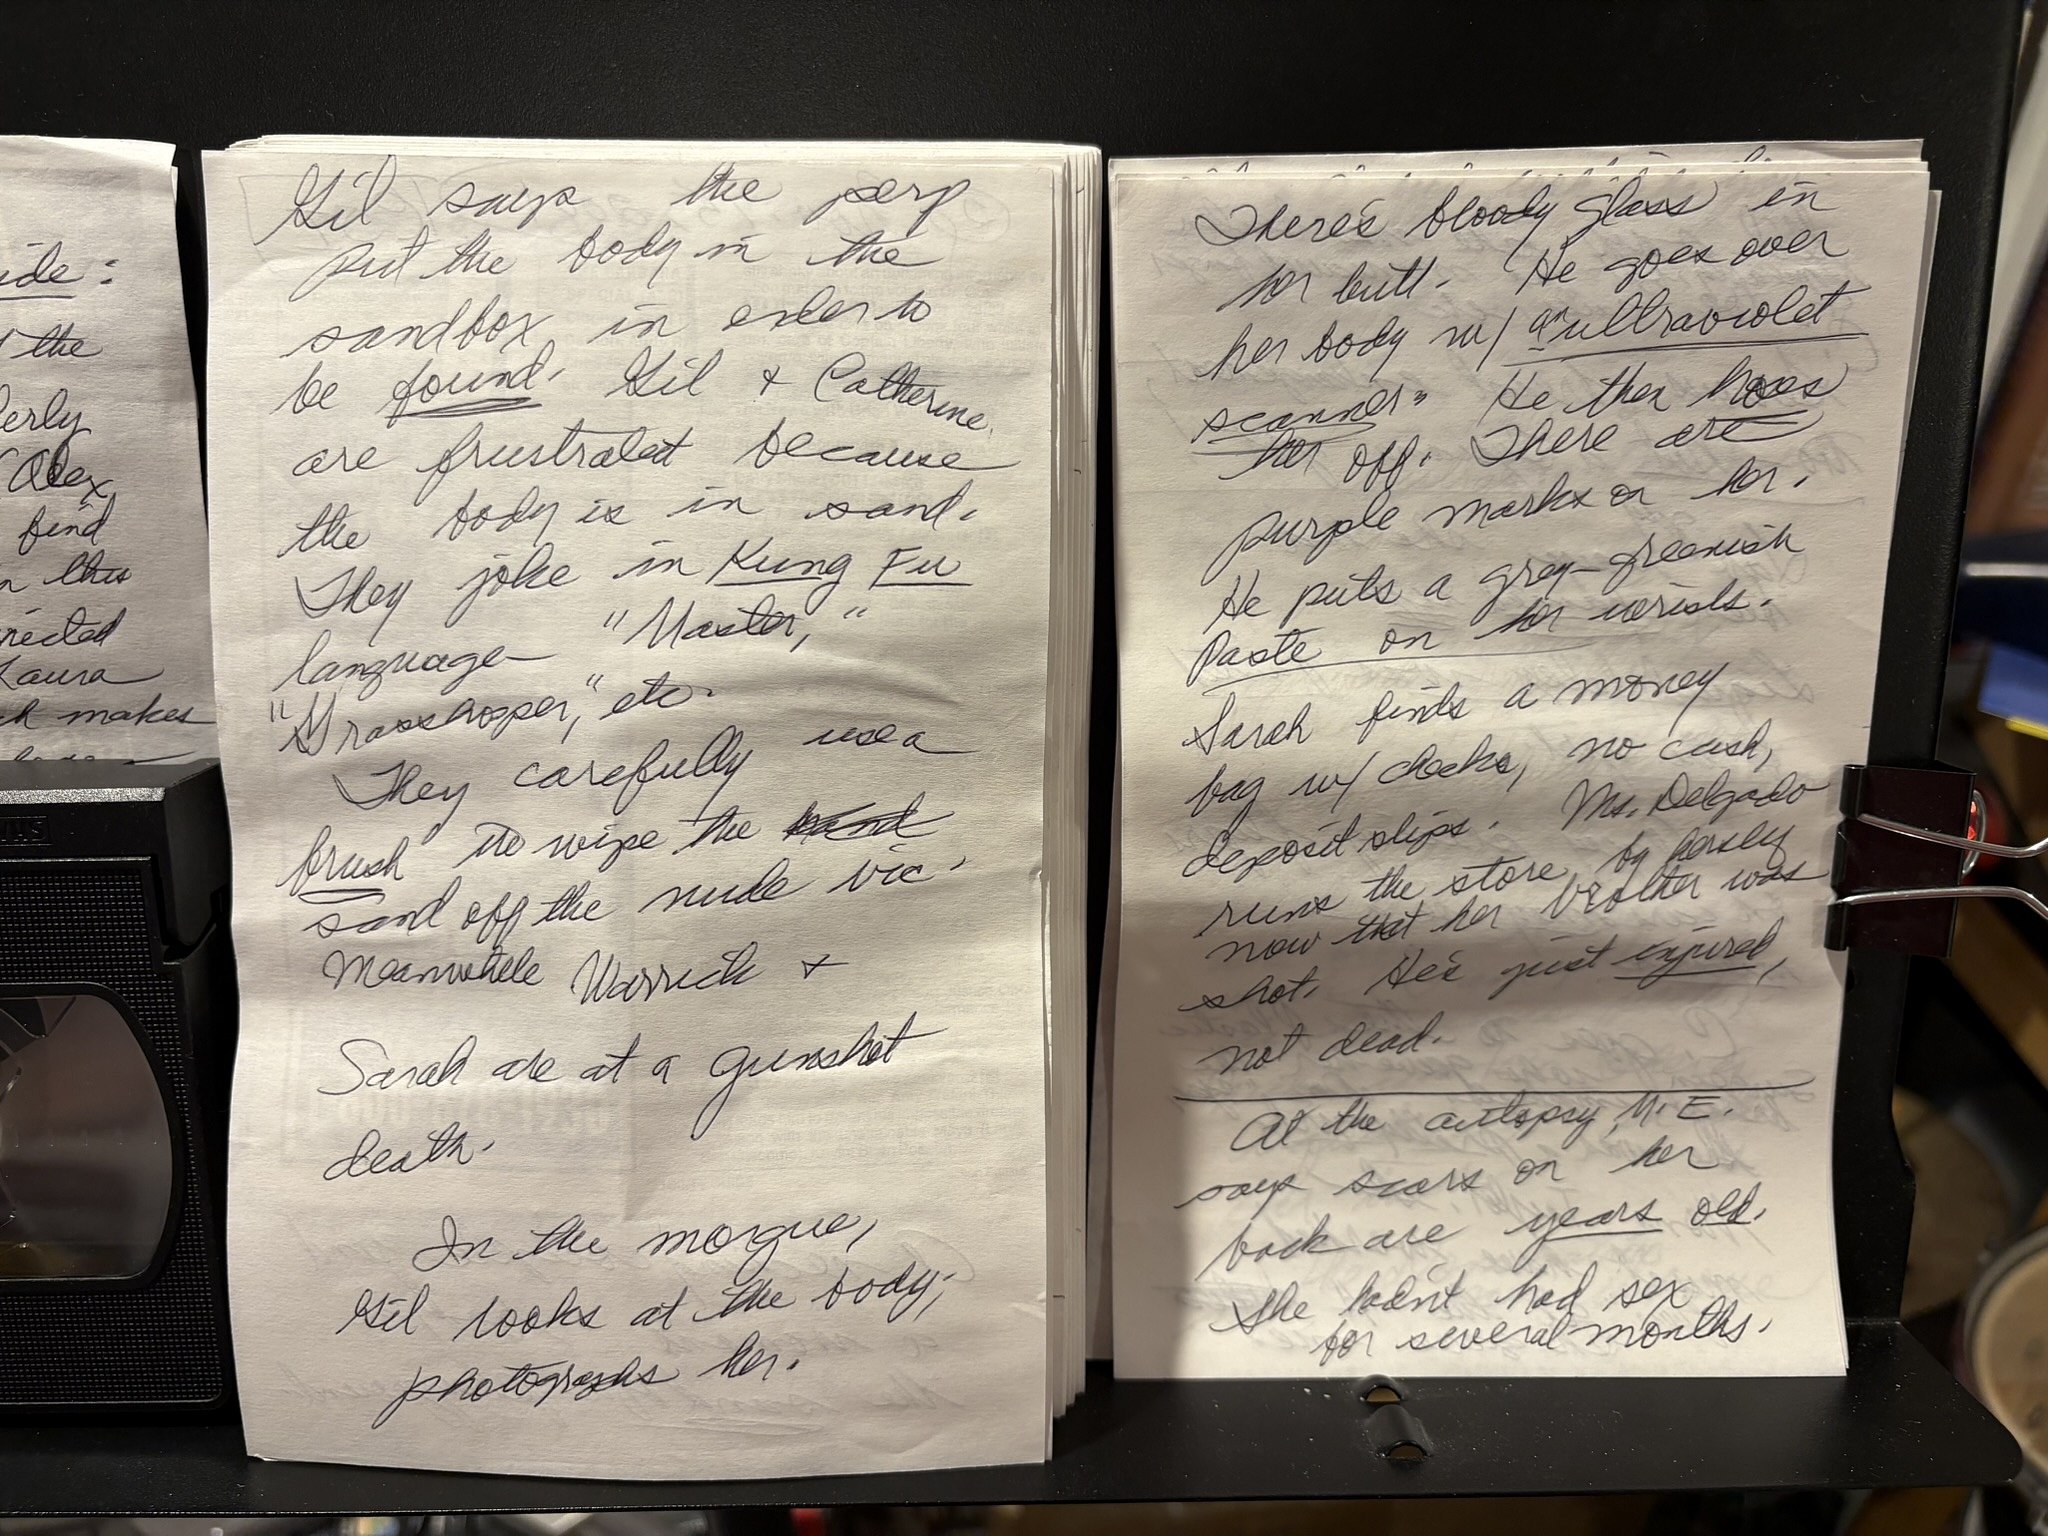 ide:
the
erly
Alex
find
n this
nected
Laura
ch makes
VHS
Gil says the perp
put the body in the
sandbox in order to
be found. Gil + Catherine
are frustrated because
the body is in sand.
They joke in Kung Fu
language "Master,"
"Grasshopper," etc.
They carefully use a
brush to wipe the
sand off the nude vic.
Meanwhile Warrick +
Sarah are at a gunshot
death.
In the morgue,
Gil looks at the body,
photographs her.
There's bloody glass in
her butt. He goes over
her body w/ an ultraviolet
scanner. He then hoses
her off. There are
purple marks on her.
He puts a grey-greenish
paste on her wrists.
Sarah finds a money
bag w/ checks, no cash,
deposit slips. Ms. Delgado
runs the store by herself
now that her brother was
shot. He's just injured,
not dead.
At the autopsy, M.E.
says scars on her
back are years old.
She hadn't had sex
for several months.